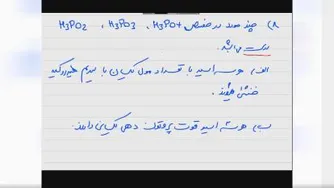 ۸) چند مورد در خصوص H3PO4 ، H3PO3 ، H3PO2
درست می‌باشد.
الف) هر سه اسید با تعداد مول یکسان با سدیم هیدروکسید
خنثی میشوند.
ب) هر سه اسید قدرت پروتون دهی یکسانی دارند.